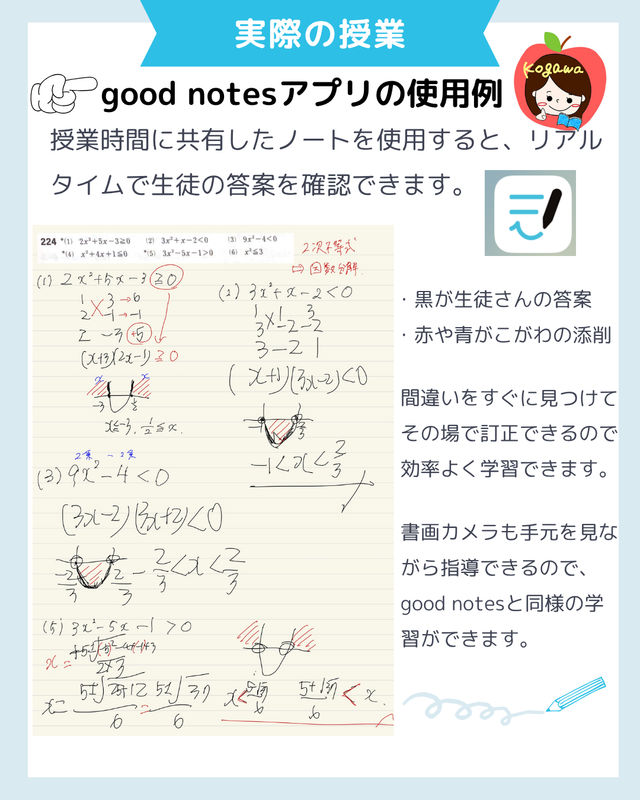 実際の授業
good notesアプリの使用例
Kogawa
授業時間に共有したノートを使用すると、リアル
タイムで生徒の答案を確認できます。
224 *(1) 2x²+5x−3≧0 (2) 3x²+x−2<0 (3) 9x²−4<0
*(4) x²+4x+1≦0 *(5) 3x²−5x−1>0 (6) x²≦3
2次不等式
⇨ 因数分解
(1) 2x²+5x−3≧0
1 3→6
2 −1→−1
2 −3 +5
(x+3)(2x−1)≧0
x x
−3 1/2
x≦−3, 1/2≦x.
(2) 3x²+x−2<0
1 1 3
3 −2 −2
3 −2 1
(x+1)(3x−2)<0
−1<x<2/3
2乗 − 2乗
(3) 9x²−4<0
(3x−2)(3x+2)<0
−2/3 2/3 −2/3<x<2/3
(5) 3x²−5x−1>0
x=
2×3
x= 5±√25+12/6 = 5±√37/6
x< 5−√37/6 5+√37/6 < x.
・黒が生徒さんの答案
・赤や青がこがわの添削
間違いをすぐに見つけて
その場で訂正できるので
効率よく学習できます。
書画カメラも手元を見な
がら指導できるので、
good notesと同様の学
習ができます。